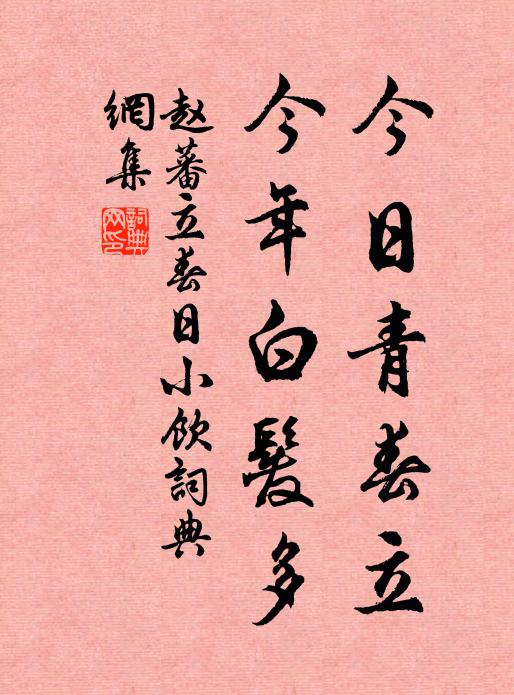 今日青春立
今年白髮多
赵蕃立春日小飲詞典
網集
詞典
网印